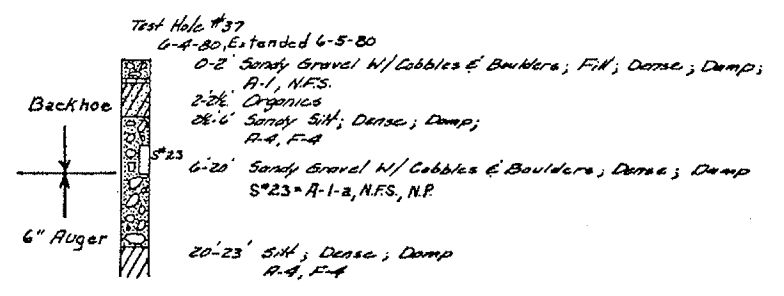 Test Hole #37
6-4-80, Extended 6-5-80
0-2' Sandy Gravel W/Cobbles & Boulders; Fill; Dense; Damp;
A-1, N.F.S.
2-2½' Organics
2½'-6' Sandy Silt; Dense; Damp;
A-4, F-4
Backhoe
S#23
6'-20' Sandy Gravel W/ Cobbles & Boulders; Dense; Damp
S#23 = A-1-a, N.F.S., N.P.
6" Auger
20'-23' Silt; Dense; Damp
A-4, F-4